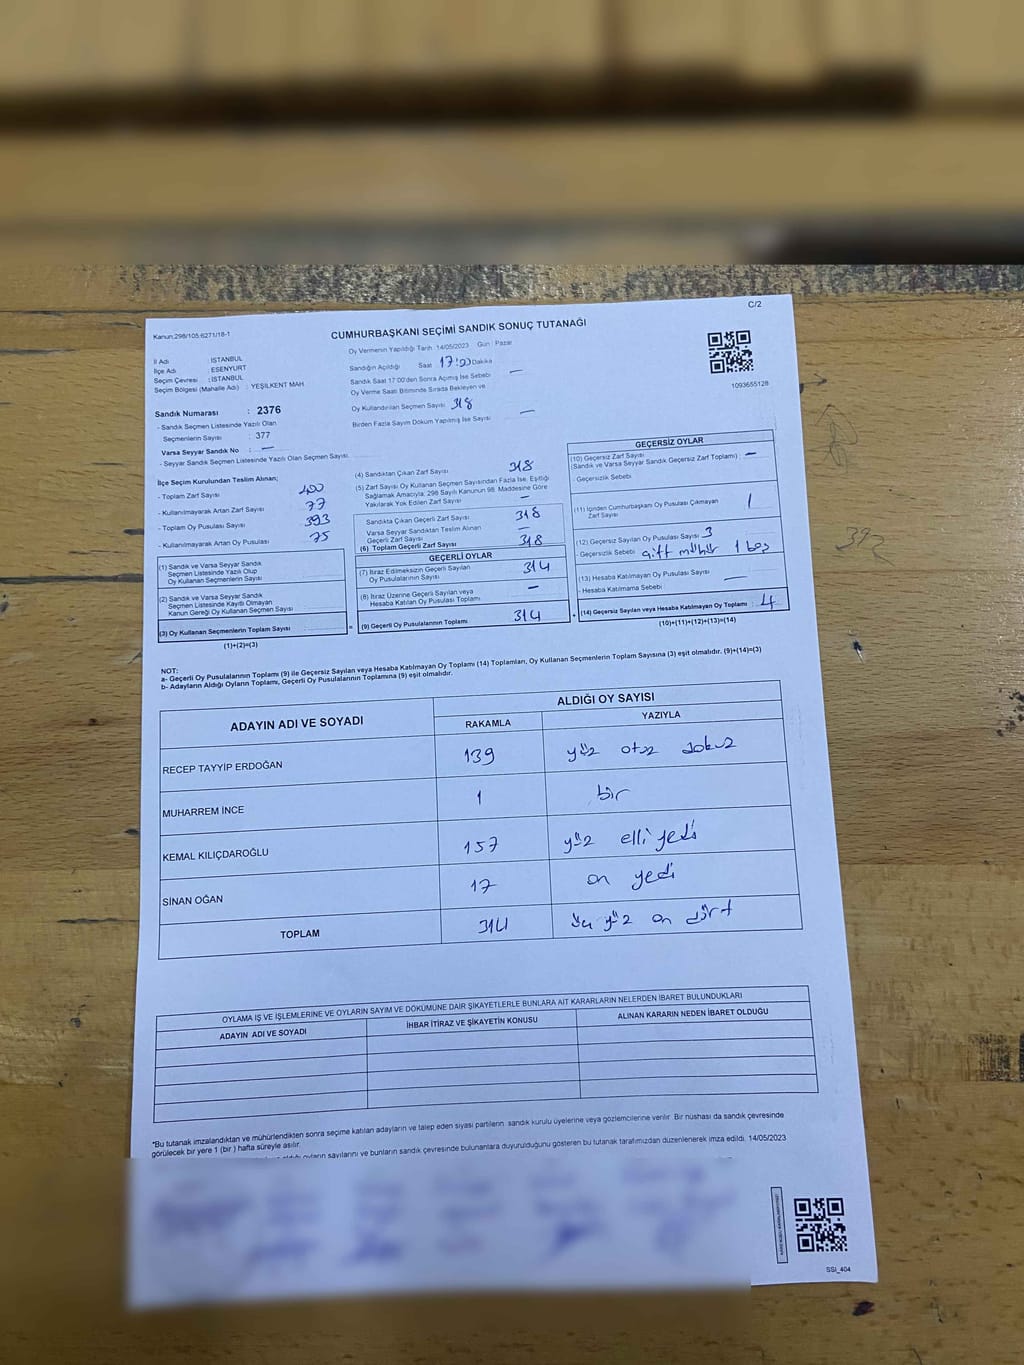 C/2
Kanun:298/105:6271/18-1
CUMHURBAŞKANI SEÇİMİ SANDIK SONUÇ TUTANAĞI
Oy Vermenin Yapıldığı Tarih : 14/05/2023 Gün : Pazar
İl Adı : İSTANBUL
İlçe Adı : ESENYURT
Seçim Çevresi : İSTANBUL
Seçim Bölgesi (Mahalle Adı) : YEŞİLKENT MAH
Sandık Numarası : 2376
- Sandık Seçmen Listesinde Yazılı Olan
Seçmenlerin Sayısı : 377
Varsa Seyyar Sandık No : —
- Seyyar Sandık Seçmen Listesinde Yazılı Olan Seçmen Sayısı
Sandığın Açıldığı Saat 17:00 Dakika
Sandık Saat 17:00'den Sonra Açılmış İse Sebebi —
Oy Verme Saati Bitiminde Sırada Bekleyen ve
Oy Kullandırılan Seçmen Sayısı 318
Birden Fazla Sayım Döküm Yapılmış İse Sayısı —
1093655128
İlçe Seçim Kurulundan Teslim Alınan;
- Toplam Zarf Sayısı 400
- Kullanılmayarak Artan Zarf Sayısı 77
- Toplam Oy Pusulası Sayısı 393
- Kullanılmayarak Artan Oy Pusulası 75
(1) Sandık ve Varsa Seyyar Sandık
Seçmen Listesinde Yazılı Olup
Oy Kullanan Seçmenlerin Sayısı
(2) Sandık ve Varsa Seyyar Sandık
Seçmen Listesinde Kayıtlı Olmayan
Kanun Gereği Oy Kullanan Seçmen Sayısı
(3) Oy Kullanan Seçmenlerin Toplam Sayısı =
(1)+(2)=(3)
(4) Sandıktan Çıkan Zarf Sayısı 318
(5) Zarf Sayısı Oy Kullanan Seçmen Sayısından Fazla İse, Eşitliği
Sağlamak Amacıyla; 298 Sayılı Kanunun 98. Maddesine Göre
Yakılarak Yok Edilen Zarf Sayısı —
Sandıkta Çıkan Geçerli Zarf Sayısı 318
Varsa Seyyar Sandıktan Teslim Alınan
Geçerli Zarf Sayısı —
(6) Toplam Geçerli Zarf Sayısı 318
GEÇERLİ OYLAR
(7) İtiraz Edilmeksizin Geçerli Sayılan
Oy Pusulalarının Sayısı 314
(8) İtiraz Üzerine Geçerli Sayılan veya
Hesaba Katılan Oy Pusulası Toplamı —
(9) Geçerli Oy Pusulalarının Toplamı 314 +
GEÇERSİZ OYLAR
(10) Geçersiz Zarf Sayısı
(Sandık ve Varsa Seyyar Sandık Geçersiz Zarf Toplamı) : —
- Geçersizlik Sebebi
(11) İçinden Cumhurbaşkanı Oy Pusulası Çıkmayan
Zarf Sayısı 1
(12) Geçersiz Sayılan Oy Pusulası Sayısı 3
- Geçersizlik Sebebi çift mühür 1 boş
(13) Hesaba Katılmayan Oy Pusulası Sayısı
- Hesaba Katılmama Sebebi —
(14) Geçersiz Sayılan veya Hesaba Katılmayan Oy Toplamı : 4
(10)+(11)+(12)+(13)=(14)
392
NOT:
a- Geçerli Oy Pusulalarının Toplamı (9) ile Geçersiz Sayılan veya Hesaba Katılmayan Oy Toplamı (14) Toplamları, Oy Kullanan Seçmenlerin Toplam Sayısına (3) eşit olmalıdır. (9)+(14)=(3)
b- Adayların Aldığı Oyların Toplamı, Geçerli Oy Pusulalarının Toplamına (9) eşit olmalıdır.
ADAYIN ADI VE SOYADI
ALDIĞI OY SAYISI
RAKAMLA YAZIYLA
RECEP TAYYİP ERDOĞAN 139 yüz otuz dokuz
MUHARREM İNCE 1 bir
KEMAL KILIÇDAROĞLU 157 yüz elli yedi
SİNAN OĞAN 17 on yedi
TOPLAM 314 üç yüz on dört
OYLAMA İŞ VE İŞLEMLERİNE VE OYLARIN SAYIM VE DÖKÜMÜNE DAİR ŞİKAYETLERLE BUNLARA AİT KARARLARIN NELERDEN İBARET BULUNDUKLARI
ADAYIN ADI VE SOYADI İHBAR İTİRAZ VE ŞİKAYETİN KONUSU ALINAN KARARIN NEDEN İBARET OLDUĞU
*Bu tutanak imzalandıktan ve mühürlendikten sonra seçime katılan adayların ve talep eden siyasi partilerin sandık kurulu üyelerine veya gözlemcilerine verilir. Bir nüshası da sandık çevresinde
görülecek bir yere 1 (bir) hafta süreyle asılır.
oyların sayılarını ve bunların sandık çevresinde bulunanlara duyurulduğunu gösteren bu tutanak tarafımızdan düzenlenerek imza edildi. 14/05/2023
SSI_404